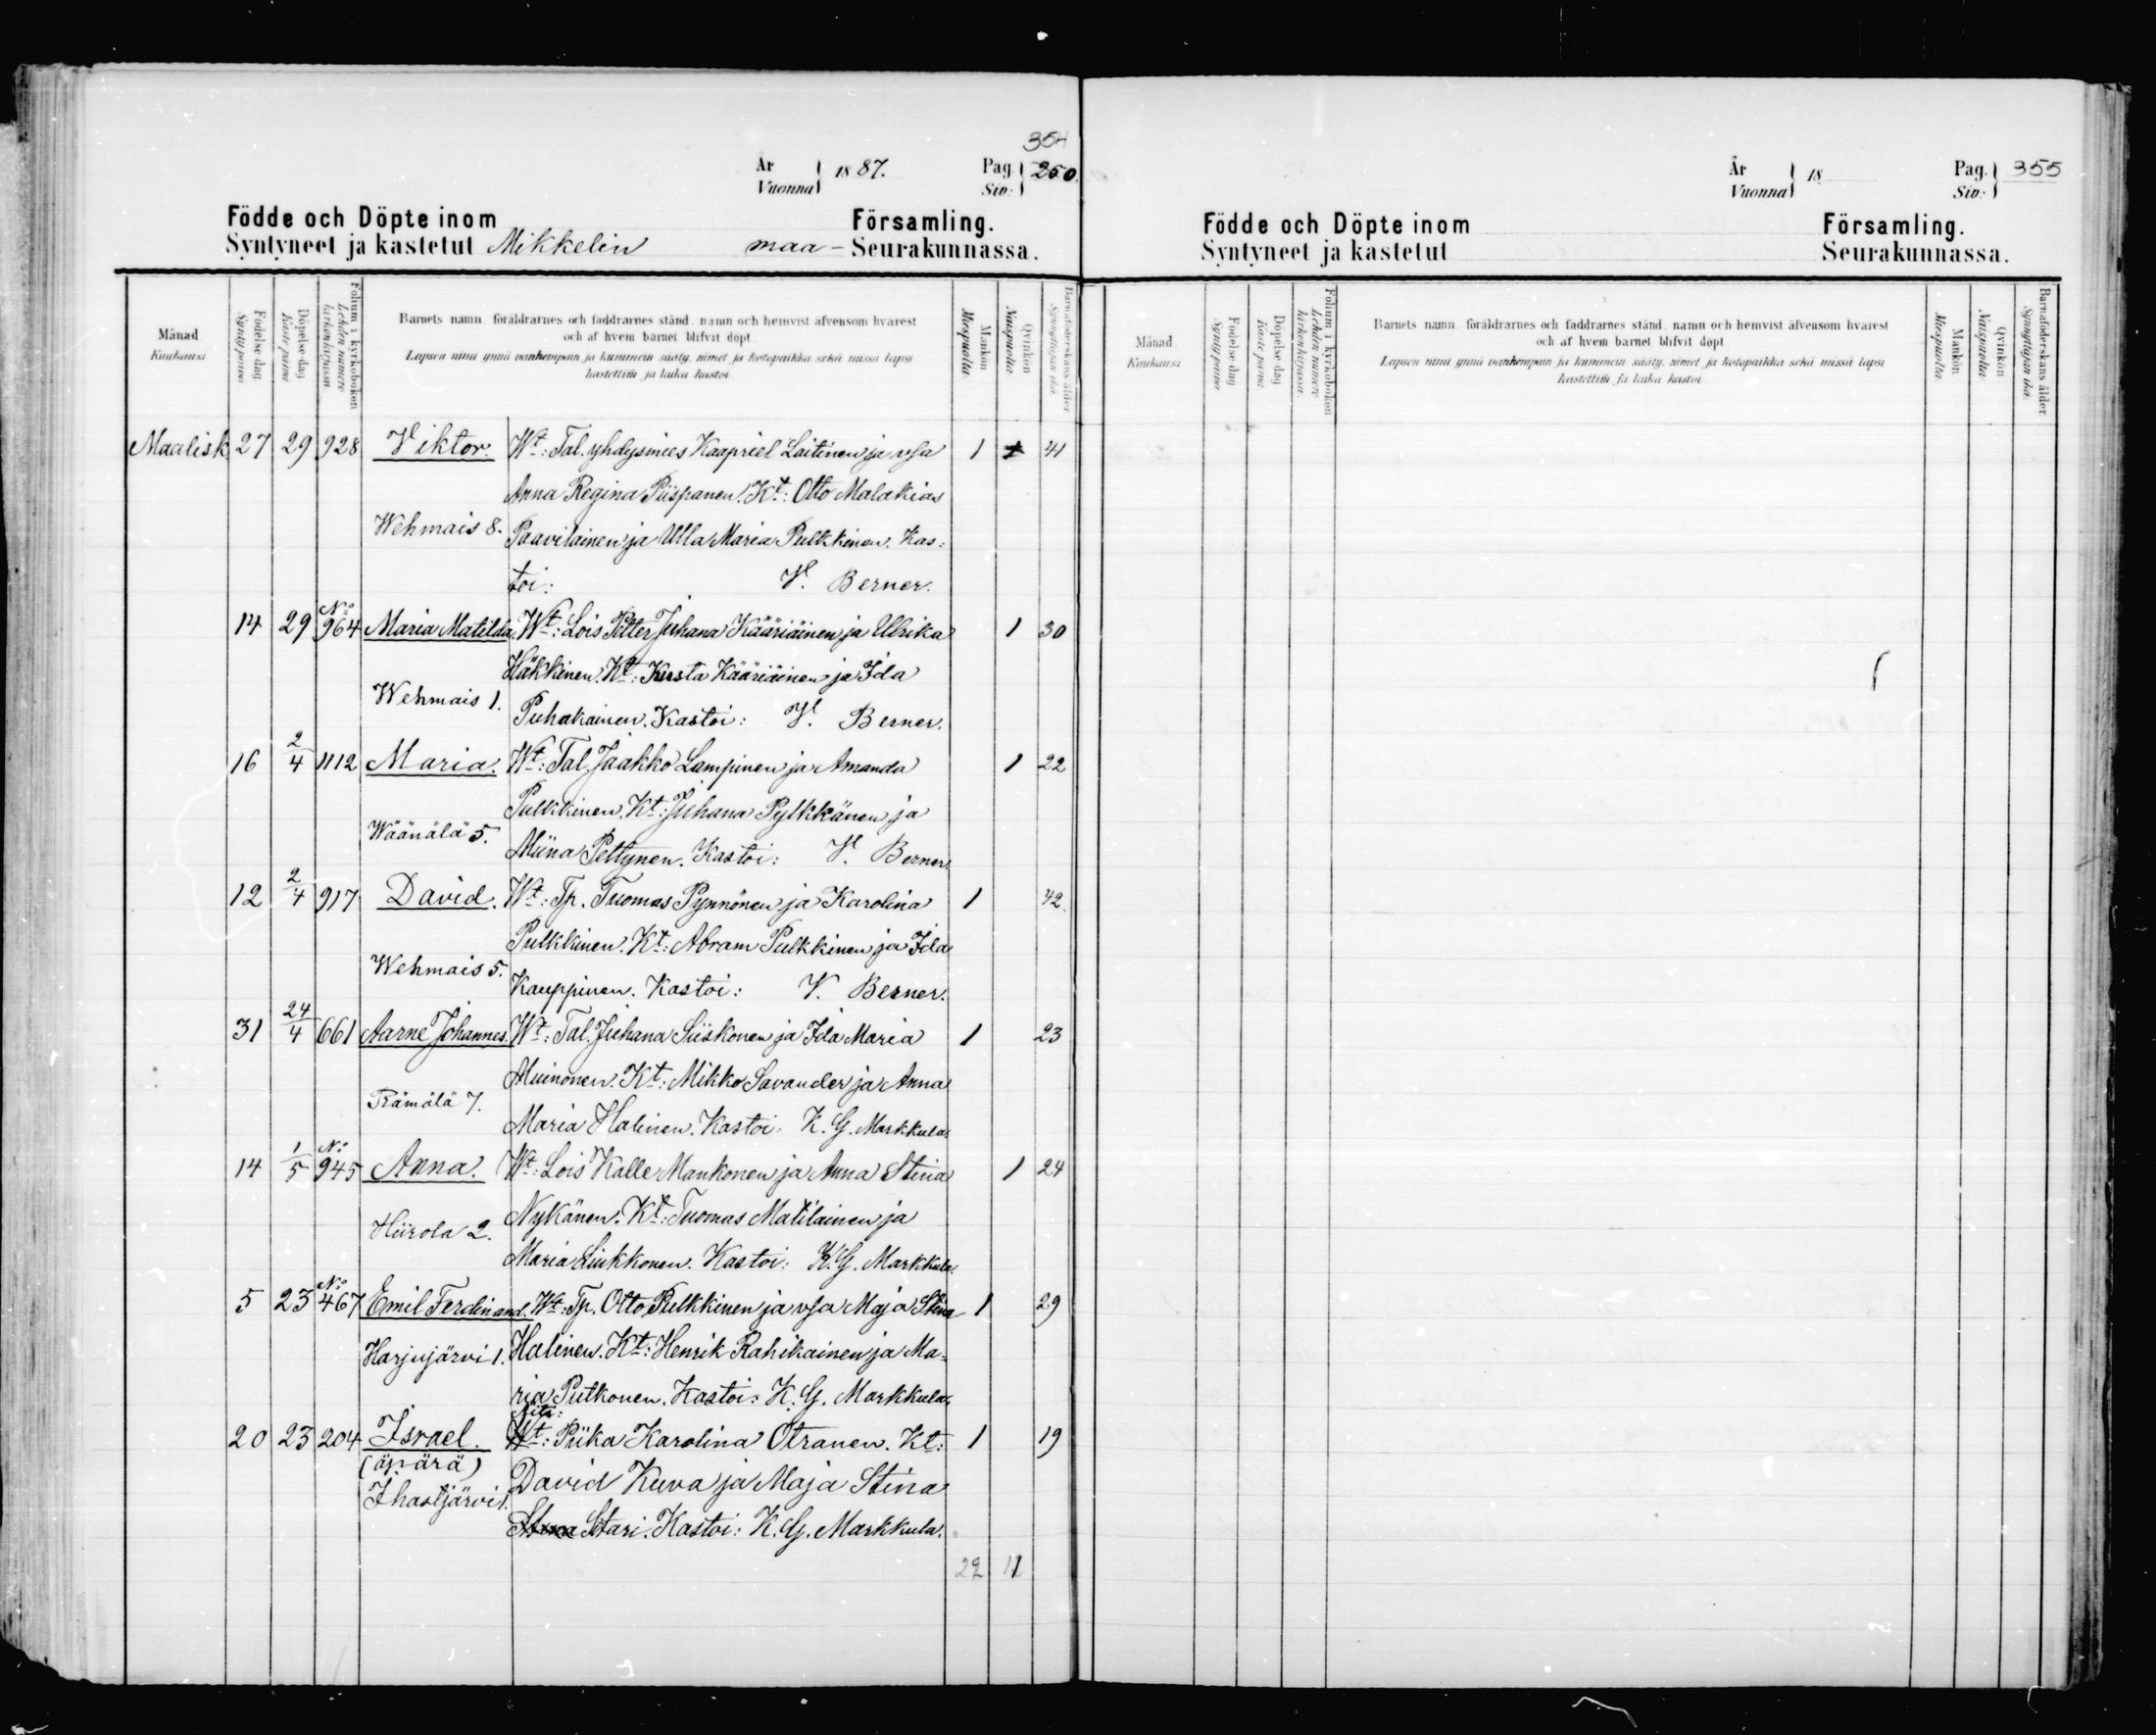 354
År Vuonna 1887. Pag. Siv: 250.
Födde och Döpte inom Församling.
Syntyneet ja kastetut Mikkelin maa- Seurakunnassa.
Månad Kuukausi
Födelse dag Synty päivä
Döpelse dag Kaste päivä
Folium i kyrkoboken Lehden numero kirkonkirjassa
Barnets namn, föräldrarnes och faddrarnes stånd, namn och hemvist äfvensom hvarest
och af hvem barnet blifvit döpt
Lapsen nimi ynnä vanhempain ja kummein sääty, nimet ja kotopaikka sekä missä lapsi
kastettiin ja kuka kastoi.
Mankön Miespuolta
Qvinkön Naispuolta
Barnaföderskans ålder Synnyttäjän ikä
Maalisk. 27 29 928 Viktor. Wt: Tal. yhdysmies Kaapriel Laitinen ja vsa 1 1 41
Anna Regina Piispanen. Kt: Otto Malakias
Wehmais 8. Paavilainen ja Ulla Maria Pulkkinen. Kas-
toi: V. Berner.
14 29 No 964 Maria Matilda. Wt: Lois Petter Juhana Kääriäinen ja Ulrika 1 30
Häkkinen. Kt: Kusta Kääriäinen ja Ida
Wehmais 1. Puhakainen. Kastoi: V. Berner.
16 2/4 1112 Maria. Wt: Tal. Jaakko Lampinen ja Amanda 1 22
Pulkkinen. Kt: Juhana Pylkkänen ja
Wäänälä 5. Miina Pettynen. Kastoi: V. Berner.
12 2/4 917 David. Wt: Tp. Tuomas Pynnönen ja Karolina 1 42.
Pulkkinen. Kt: Abram Pulkkinen ja Ida
Wehmais 5. Kauppinen. Kastoi: V. Berner.
31 24/4 661 Aarne Johannes. Wt: Tal. Juhana Siiskonen ja Ida Maria 1 23
Muinonen. Kt: Mikko Savander ja Anna
Rämälä 7. Maria Halinen. Kastoi: K. G. Markkula.
14 1/5 No 945 Anna. Wt: Lois Kalle Mankonen ja Anna Stina 1 24
Nykänen. Kt: Tuomas Matilainen ja
Hiirola 2. Maria Liukkonen. Kastoi: K. G. Markkula.
5 23 No 467 Emil Ferdinand. Wt: Tp. Otto Pulkkinen ja vsa Maja Stina 1 29
Harjujärvi 1. Halinen. Kt: Henrik Rahikainen ja Ma-
ria Putkonen. Kastoi: K. G. Markkula.
Äiti:
20 23 204 Israel. Wt: Piika Karolina Otranen. Kt: 1 19
(äpärä) David Kuva ja Maja Stina
Ihastjärvi 1. Stina Stari. Kastoi: K. G. Markkula.
22 11
År Vuonna 18 Pag. Siv: 355
Födde och Döpte inom Församling.
Syntyneet ja kastetut Seurakunnassa.
Månad Kuukausi
Födelse dag Synty päivä
Döpelse dag Kaste päivä
Folium i kyrkoboken Lehden numero kirkonkirjassa
Barnets namn, föräldrarnes och faddrarnes stånd, namn och hemvist äfvensom hvarest
och af hvem barnet blifvit döpt
Lapsen nimi ynnä vanhempain ja kummein sääty, nimet ja kotopaikka sekä missä lapsi
kastettiin ja kuka kastoi.
Mankön Miespuolta
Qvinkön Naispuolta
Barnaföderskans ålder Synnyttäjän ikä